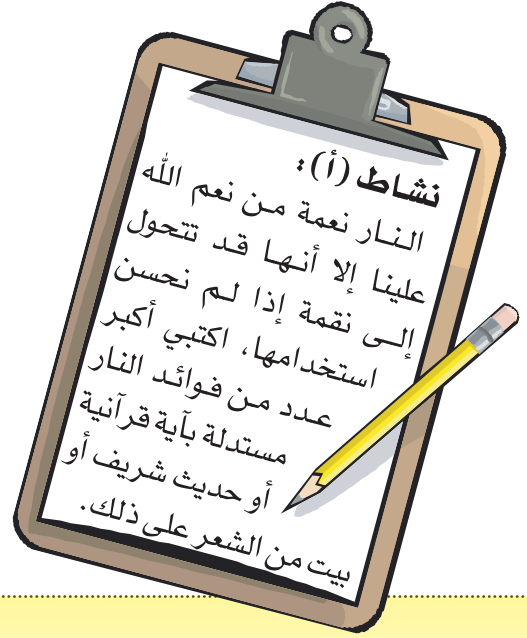 نشاط (أ) :
النار نعمة من نعم الله
علينا إلا أنها قد تتحول
إلى نقمة إذا لم نحسن
استخدامها، اكتبي أكبر
عدد من فوائد النار
مستدلة بآية قرآنية
أو حديث شريف أو
بيت من الشعر على ذلك.